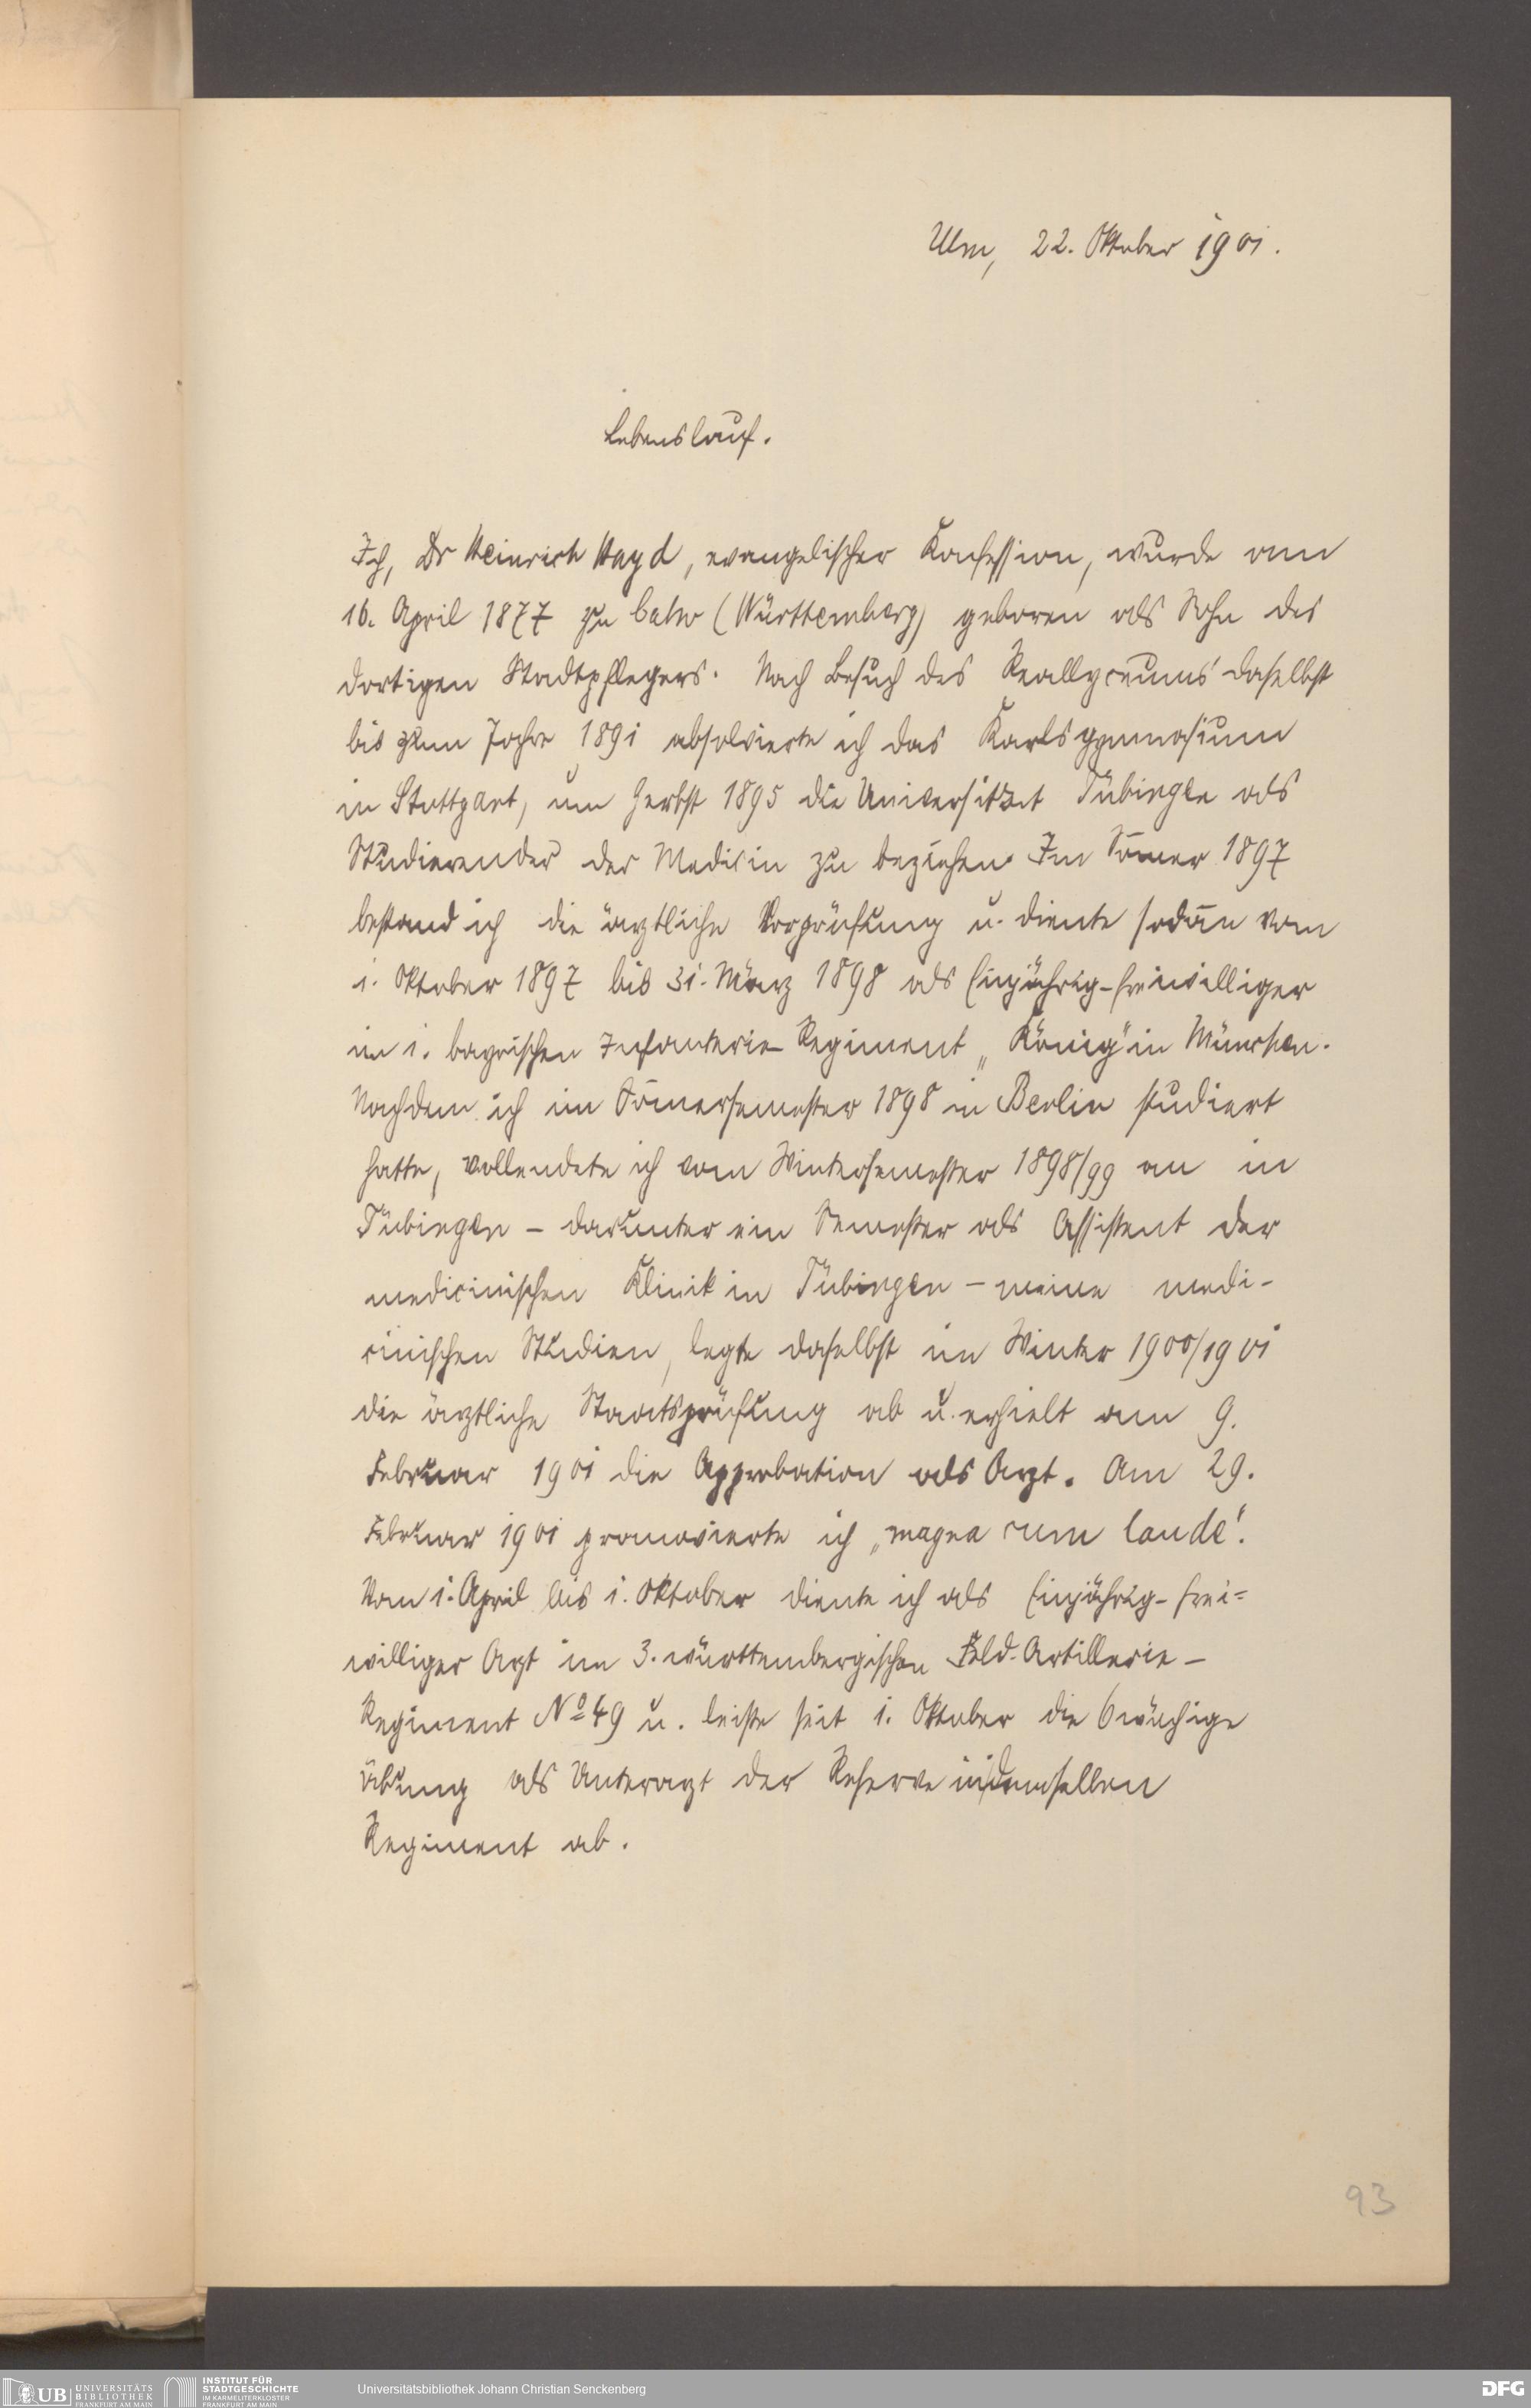 Ulm, 22. Oktober 1901.
Lebenslauf.
Ich, Dr Heinrich Hayd, evangelischer Konfession, wurde am
16. April 1877 zu Calw (Württemberg) geboren als Sohn des
dortigen Stadtpflegers. Nach Besuch des Reallyceums daselbst
bis zum Jahre 1891 absolvierte ich das Karlsgymnasium
in Stuttgart, um Herbst 1895 die Universität Tübingen als
Studierender der Medicin zu beziehen. Im Som̄er 1897
bestand ich die ärztliche Vorprüfung u. diente sodan̄ vom
1. Oktober 1897 bis 31. März 1898 als Einjährig-freiwilliger
im 1. bayrischen Infanterie-Regiment „König" in München.
Nachdem ich im Som̄ersemester 1898 in Berlin studiert
hatte, vollendete ich vom Wintersemester 1898/99 an in
Tübingen – darunter ein Semester als Assistent der
medicinischen Klinik in Tübingen – meine medi-
cinischen Studien, legte daselbst im Winter 1900/1901
die ärztliche Staatsprüfung ab u. erhielt am 9.
Februar 1901 die Approbation als Arzt. Am 29.
Februar 1901 promovierte ich „magna cum laude".
Vom 1. April bis 1. Oktober diente ich als Einjährig-frei=
williger Arzt im 3. württembergischen Feld-Artillerie-
Regiment No 49 u. leiste seit 1. Oktober die 6wöchige
Übung als Unterarzt der Reserve in demselben
Regiment ab.
93
UB UNIVERSITÄTS BIBLIOTHEK FRANKFURT AM MAIN
INSTITUT FÜR STADTGESCHICHTE IM KARMELITERKLOSTER FRANKFURT AM MAIN
Universitätsbibliothek Johann Christian Senckenberg
DFG